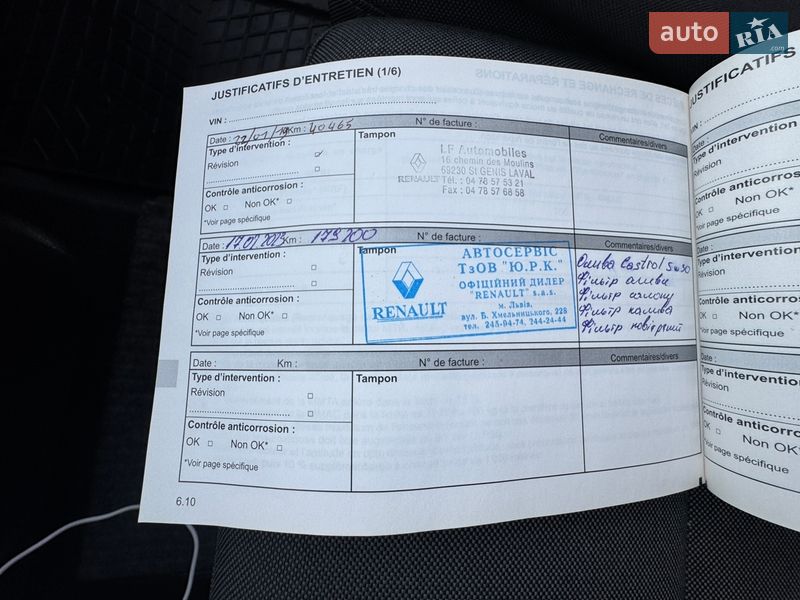 auto RIA.com
JUSTIFICATIFS D'ENTRETIEN (1/6)
VIN :
Date : 22/01/19 Km : 40465 N° de facture :
Type d'intervention :
Révision
Contrôle anticorrosion :
OK Non OK*
*Voir page spécifique
Tampon
LF Automobiles
16 chemin des Moulins
69230 St GENIS LAVAL
RENAULT Tél. : 04 78 57 53 21
Fax : 04 78 57 68 58
Commentaires/divers
Date : 17.07.2023 Km : 173200 N° de facture :
Type d'intervention :
Révision
Contrôle anticorrosion :
OK Non OK*
*Voir page spécifique
Tampon
АВТОСЕРВІС
ТзОВ "Ю.Р.К."
ОФІЦІЙНИЙ ДИЛЕР
"RENAULT" s.a.s.
м. Львів,
вул. Б. Хмельницького, 228
тел. 245-94-74, 244-24-44
RENAULT
Commentaires/divers
Олива Castrol 5w30
Фільтр оливи
Фільтр салону
Фільтр палива
Фільтр повітряний
Date : Km : N° de facture :
Type d'intervention :
Révision
Contrôle anticorrosion :
OK Non OK*
*Voir page spécifique
Tampon
Commentaires/divers
6.10
JUSTIFICATIFS
VIN :
Date :
Type d'intervention
Révision
Contrôle anticorrosion
OK Non OK*
*Voir page spécifique
Date :
Type d'intervention
Révision
Contrôle anticorros
OK Non OK*
*Voir page spécifique
Date :
Type d'interventio
Révision
Contrôle anticorro
OK Non OK*
*Voir page spécifique